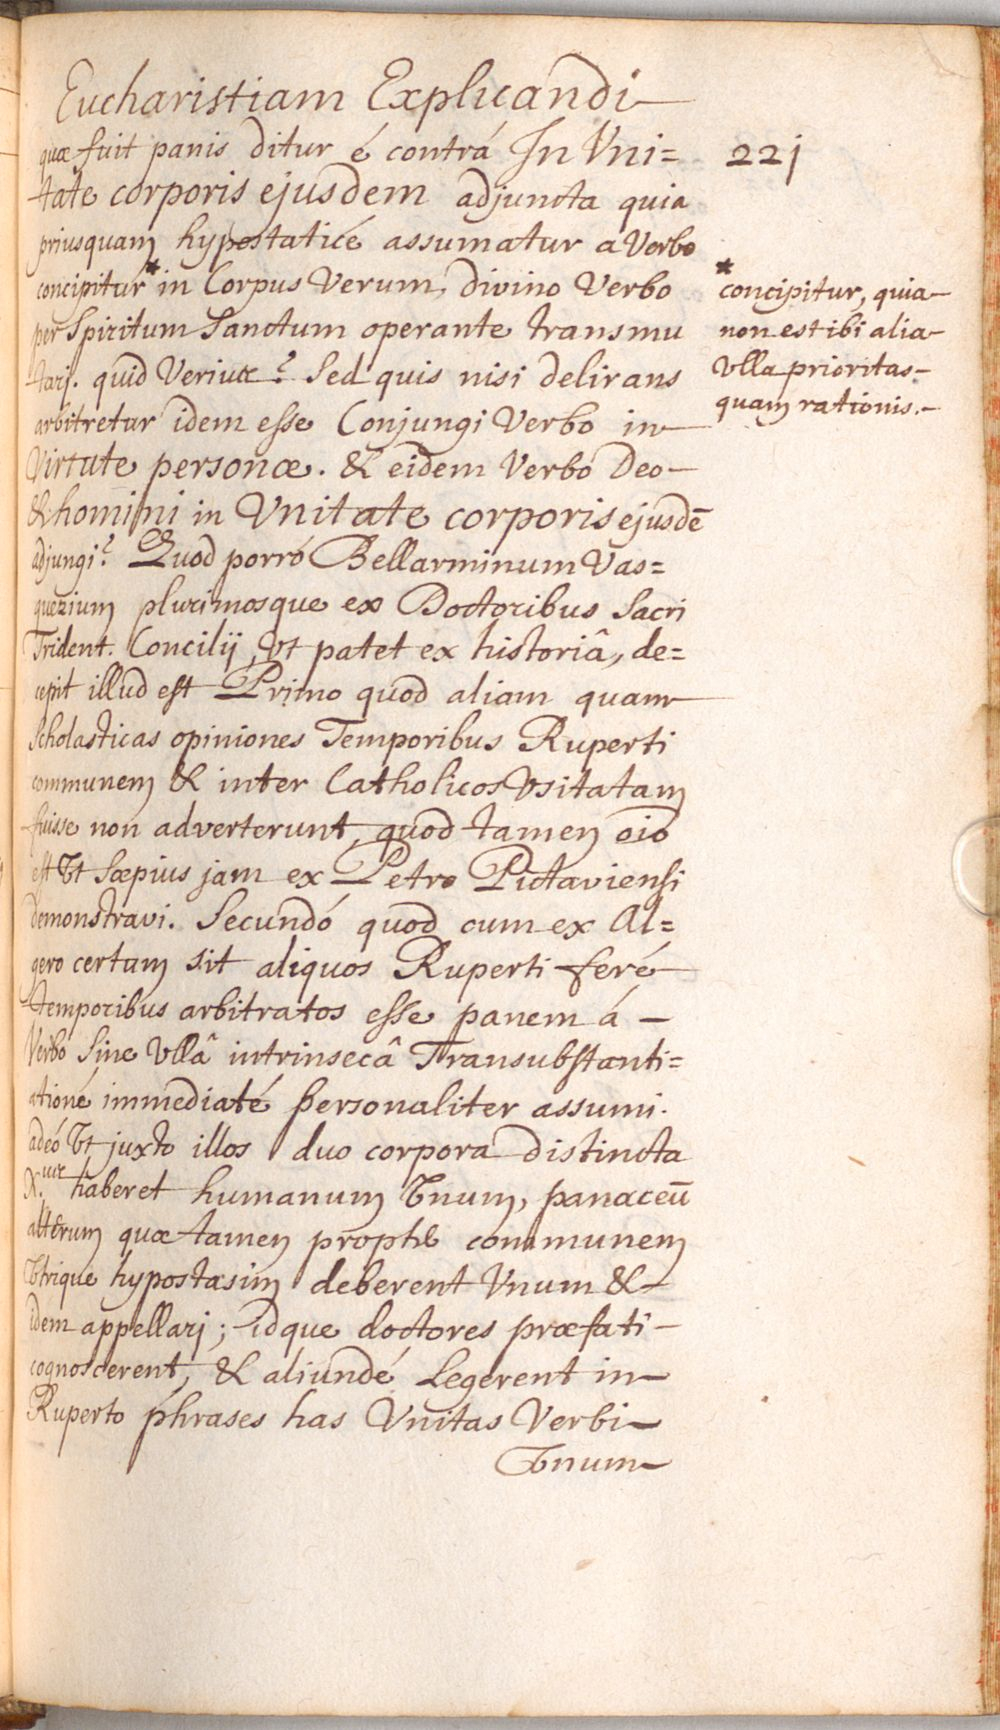 Eucharistiam Explicandi
221
quæ fuit panis ditur é contrá In Vni=
tate corporis ejusdem adjuncta quia
priusquam hypostaticé assumatur a Verbo
concipitur * in Corpus Verum, divino Verbo
per Spiritum Sanctum operante transmu
tarj. quid Verius? Sed quis nisi delirans
arbitretur idem esse Conjungi Verbo in
Virtute personæ. & eidem Verbo Deo
& homini in Vnitate corporis ejusdē
adjungi? Quod porró Bellarminum Vas=
quezium plurimosque ex Doctoribus Sacri
Trident. Concilij, Vt patet ex historiâ, de=
cepit illud est Primo quod aliam quam
Scholasticas opiniones Temporibus Ruperti
communem & inter Catholicos Vsitatam
fuisse non adverterunt, quod tamen oīo
est Vt Sæpius jam ex Petro Pictaviensi
demonstravi. Secundó quod cum ex Al=
gero certum sit aliquos Ruperti feré
temporibus arbitratos esse panem á
Verbo Sine Vllâ intrinsecâ Transubstanti=
atione immediaté personaliter assumi.
adeó Vt juxto illos duo corpora distincta
haberet humanum Vnum, panaceū
alterum quæ tamen communem
Vtrique hypostasim deberent Vnum &
idem appellarj; idque doctores præfati
cognoscerent, & aliundé Legerent in
Ruperto phrases has Vnitas Verbi
Vnum
* concipitur, quia
non est ibi alia
Vlla prioritas
quam rationis.